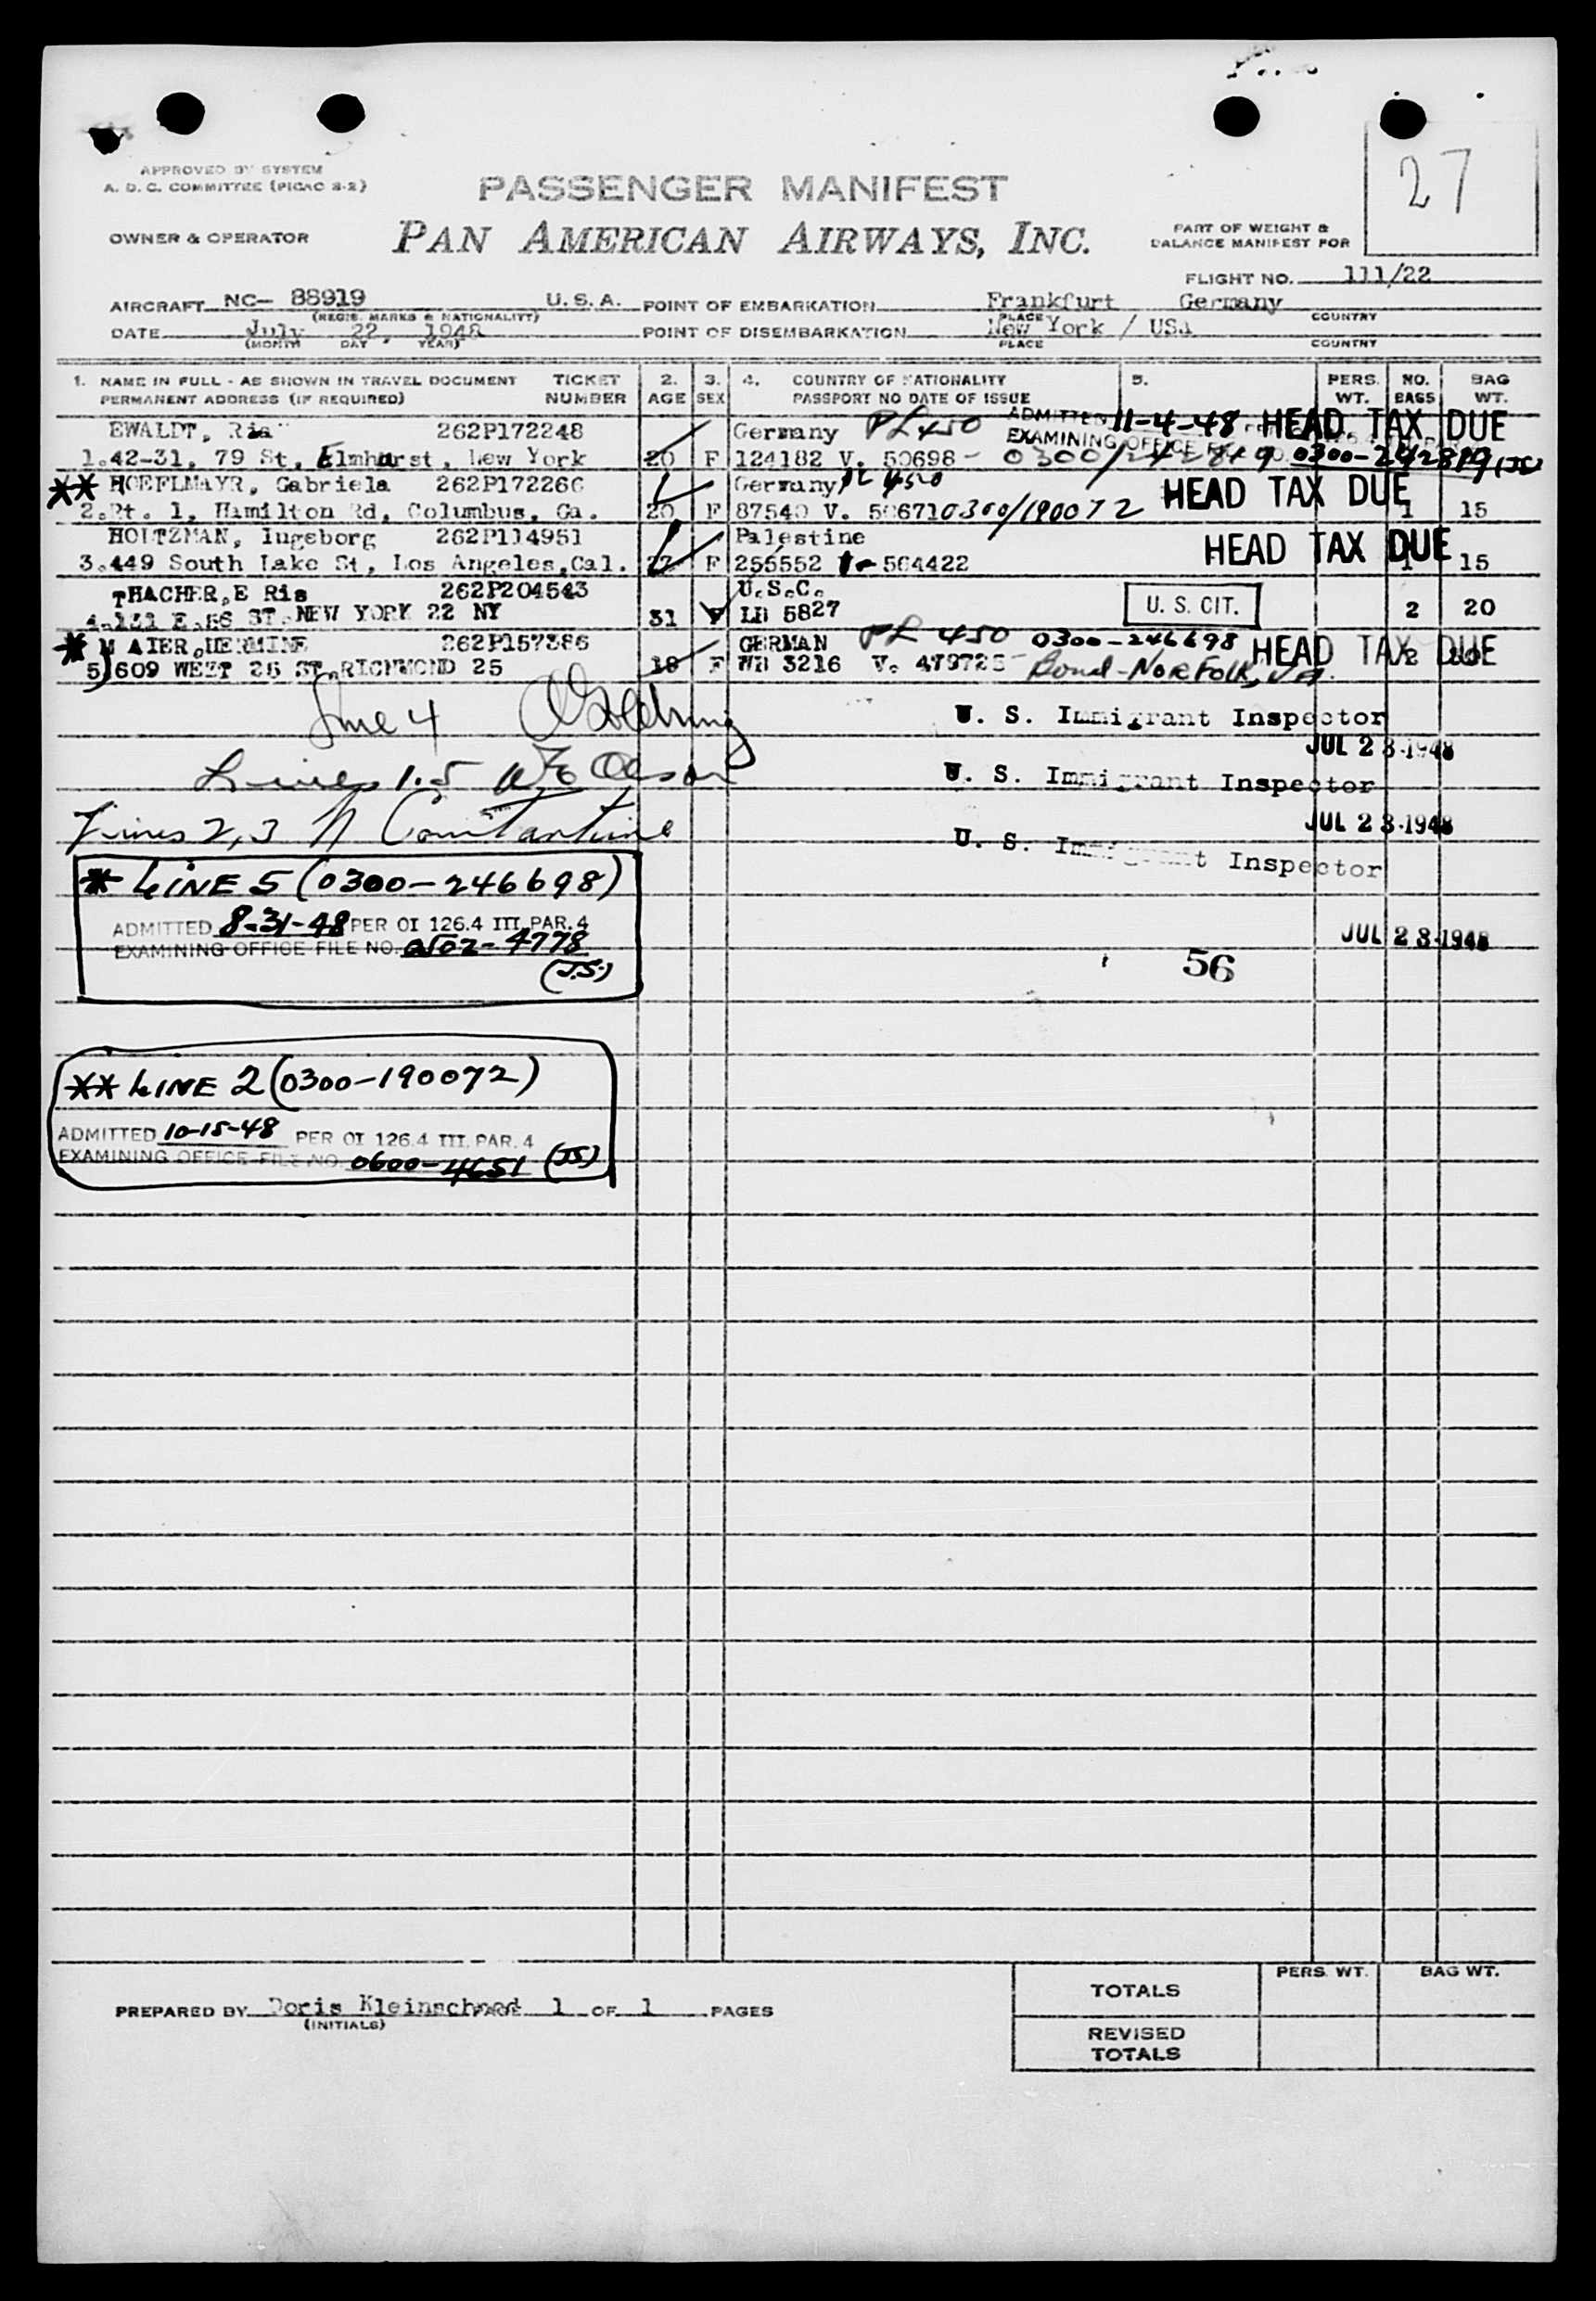 27
APPROVED BY SYSTEM
A. D. C. COMMITTEE (PICAO 2-2)
PASSENGER MANIFEST
OWNER & OPERATOR
PAN AMERICAN AIRWAYS, INC.
PART OF WEIGHT &
BALANCE MANIFEST FOR
FLIGHT NO. 111/22
AIRCRAFT NC- 88919 U.S.A. POINT OF EMBARKATION Frankfurt Germany
(REGIS. MARKS & NATIONALITY) PLACE COUNTRY
DATE July 22, 1948 POINT OF DISEMBARKATION New York / USA
(MONTH DAY YEAR) PLACE COUNTRY
1. NAME IN FULL - AS SHOWN IN TRAVEL DOCUMENT TICKET 2. 3. 4. COUNTRY OF NATIONALITY 5. PERS. NO. BAG
PERMANENT ADDRESS (IF REQUIRED) NUMBER AGE SEX PASSPORT NO DATE OF ISSUE WT. BAGS WT.
EWALDT, Ria 262P172248 Germany PL 450 ADMITTED 11-4-48 HEAD TAX DUE
1.42-31, 79 St, Elmhurst, New York 20 F 124182 V. 50698- EXAMINING OFFICE 0300-242819 (JS)
** HOEFLMAYR, Gabriela 262P172266 Germany PL 450 HEAD TAX DUE
2.Rt. 1, Hamilton Rd, Columbus, Ga. 20 F 87540 V. 50671 0300/190072 1 15
HOLTZMAN, Ingeborg 262P114951 Palestine HEAD TAX DUE
3.449 South Lake St, Los Angeles,Cal. F 255552 564422 1 15
THACHER,E Ris 262P204543 U.S.C.
4.131 E.66 ST.NEW YORK 22 NY 31 F LB 5827 U. S. CIT. 2 20
* MAIER,HERMINE 262P157386 GERMAN PL 450 0300-246698 HEAD TAX DUE
5)609 WEST 26 ST.RICHMOND 25 18 F WB 3216 V. 479725 Bond-NORFOLK, VA. 2
Line 4
U. S. Immigrant Inspector
JUL 23 1948
Lines 1.5 Olson
U. S. Immigrant Inspector
JUL 23 1948
Lines 2,3 N Constantine
U. S. Immigrant Inspector
* LINE 5 (0300-246698)
ADMITTED 8-31-48 PER OI 126.4 III, PAR. 4
EXAMINING OFFICE FILE NO. 0502-4778
(J.S.)
JUL 23 1948
56
** LINE 2 (0300-190072)
ADMITTED 10-15-48 PER OI 126.4 III, PAR. 4
EXAMINING OFFICE FILE NO. 0600-4651 (JS)
PREPARED BY Doris 1 OF 1 PAGES
(INITIALS)
PERS. WT. BAG WT.
TOTALS
REVISED
TOTALS